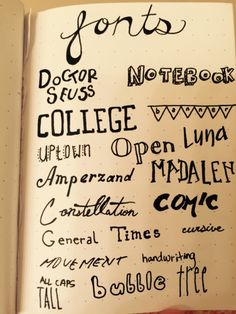 fonts
DOCTOR SEUSS
NOTEBOOK
COLLEGE
Uptown
Open
Luna
Amperzand
MADALEN
Constellation
COMIC
General Times
cursive
MOVEMENT
handwriting
ALL CAPS
TALL
bubble
tree